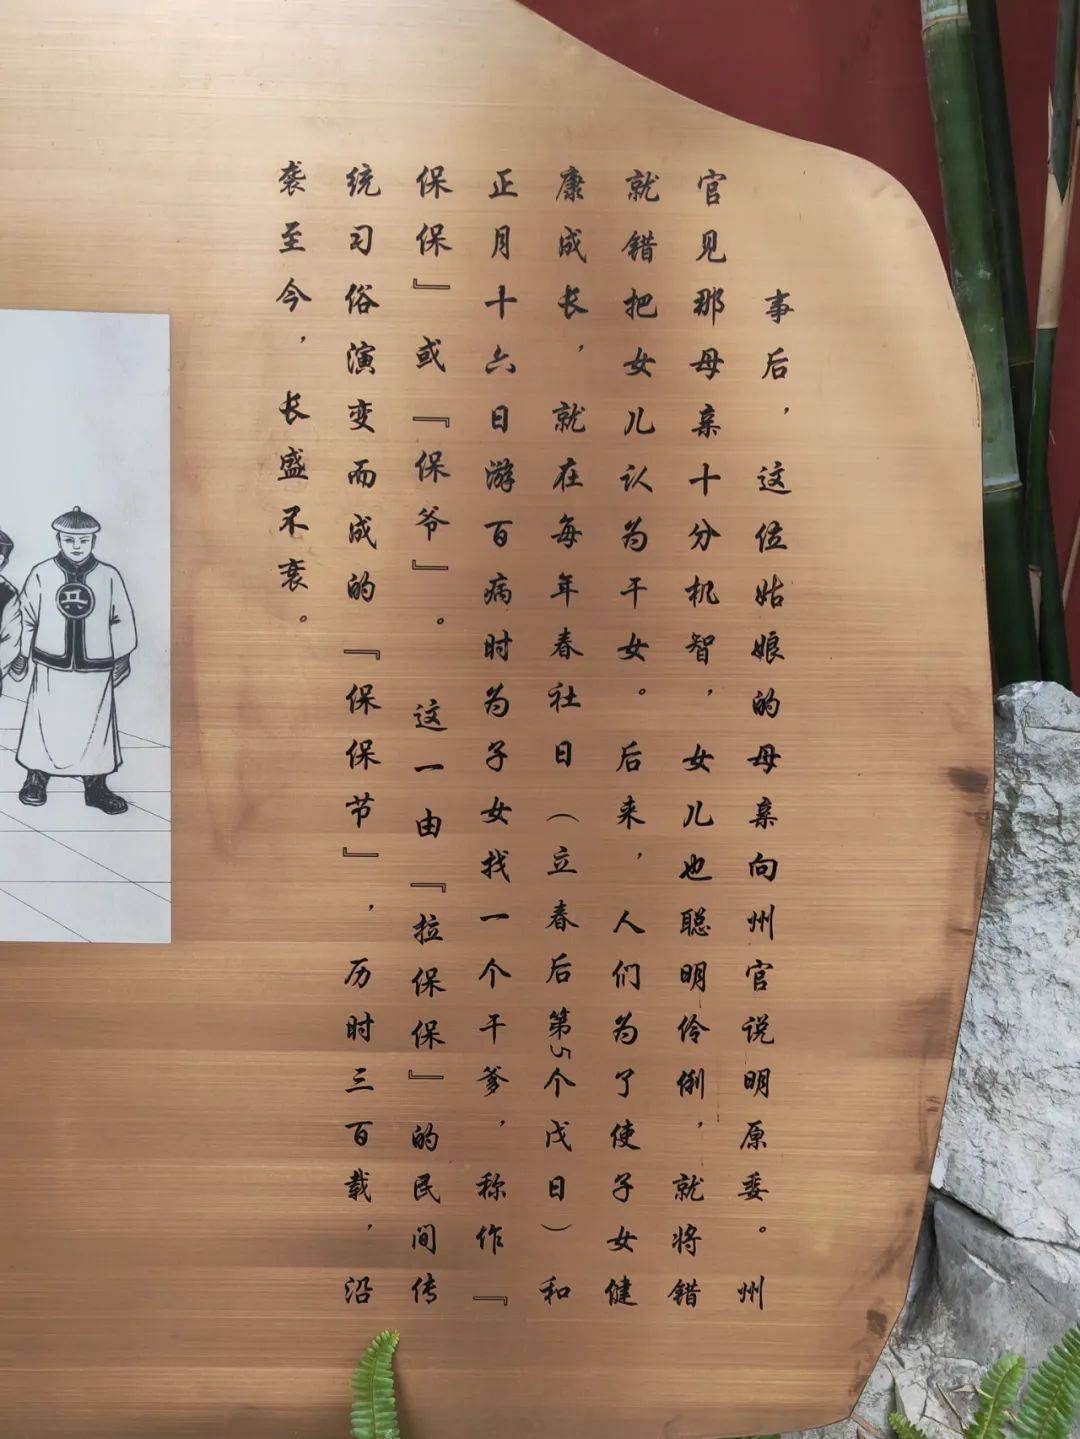 事后，这位姑娘的母亲向州官说明原委。州
官见那母亲十分机智，女儿也聪明伶俐，就将错
就错把女儿认为干女。后来，人们为了使子女健
康成长，就在每年春社日（立春后第5个戊日）和
正月十六日游百病时为子女找一个干爹，称作『
保保』或『保爷』。这一由『拉保保』的民间传
统习俗演变而成的『保保节』，历时三百载，沿
袭至今，长盛不衰。
兵